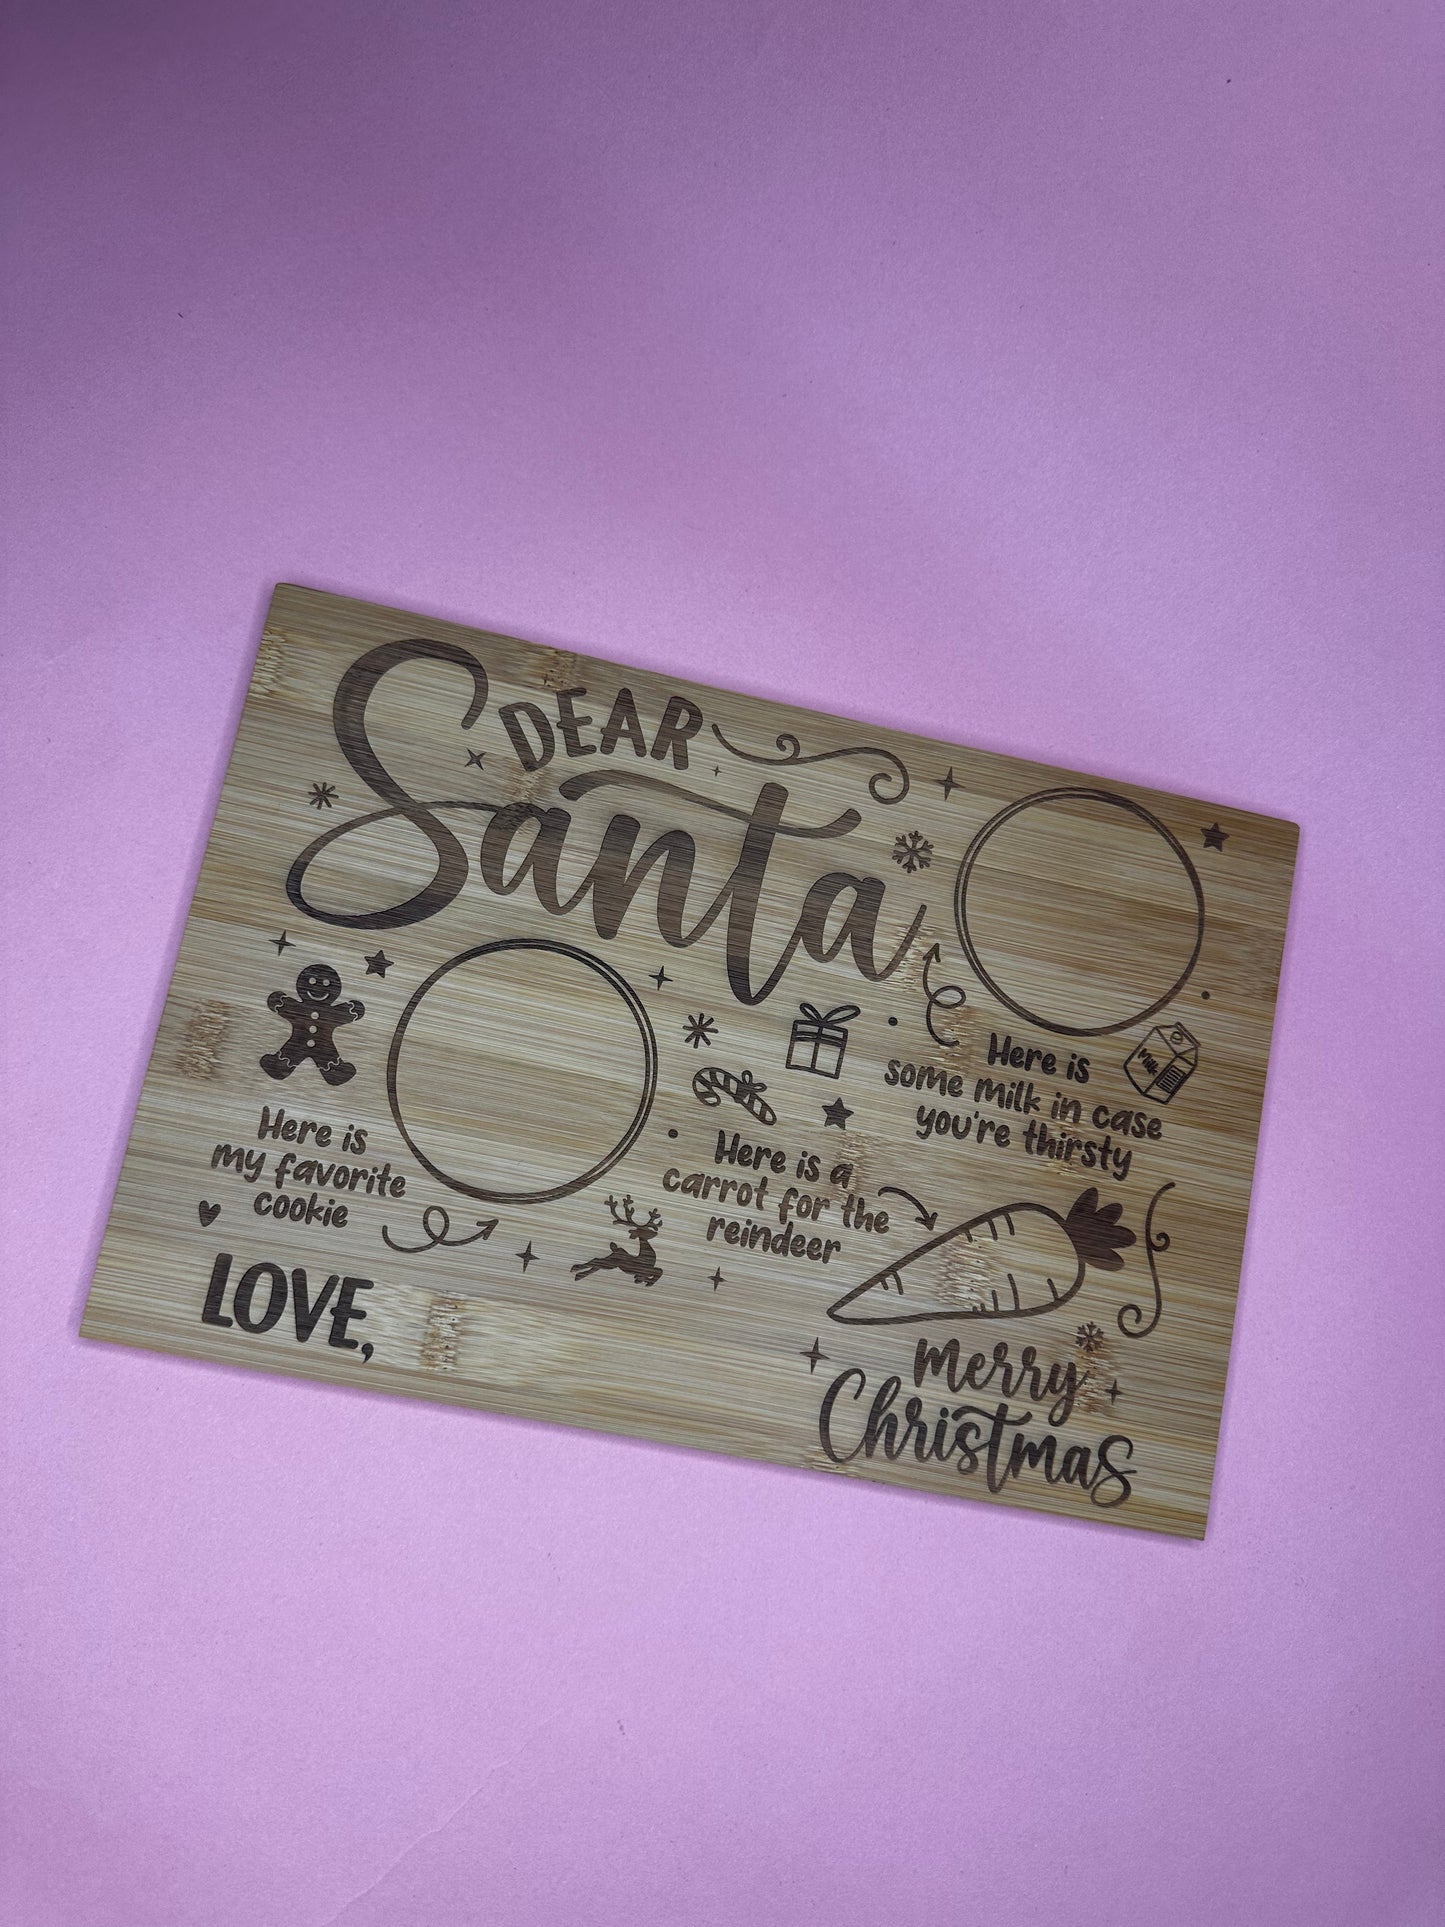 DEAR
Santa
Here is
some milk in case
you're thirsty
Milk
Here is
my favorite
cookie
Here is a
carrot for the
reindeer
LOVE,
Merry
Christmas